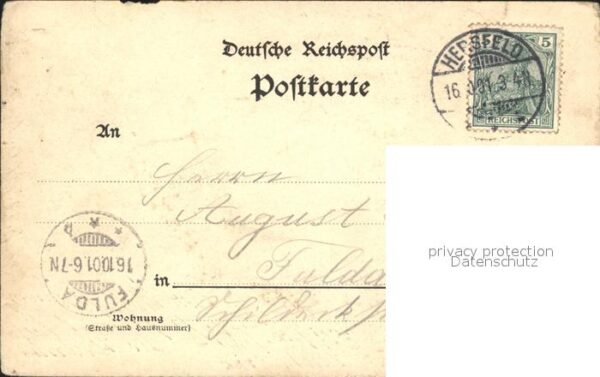 Deutsche Reichspost
Postkarte
HERSFELD
16.
5
REICHSPOST
An
Herrn
August
FULDA
16.10.01.6-7N
in Fulda
Wohnung
(Straße und Hausnummer)
privacy protection
Datenschutz